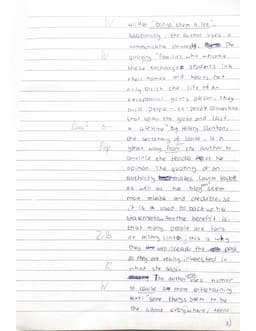 written "brings them a lot".
Additionally, the author uses a
communicative concept. The
quoting "families who welcome
these exchange students into
their homes and hearts not
only enrich the life of an
exceptional young person, they
build people-to-people connection
that span the globe and last
a lifetime" by Hillary Clinton,
the secretary of state, is a
great way from the author to
convince the reader of his
opinion. The quoting of an
authority makes
as well as the blog seem
more reliable and credible, so
it is used to back up his
statements. Another benefit is,
that many people are fans
of Hillary Clinton, this is why
they
so they are really interested in
what she says.
The author uses humor
to create a more entertaining
text: "Some things seem to be
the same everywhere; teens